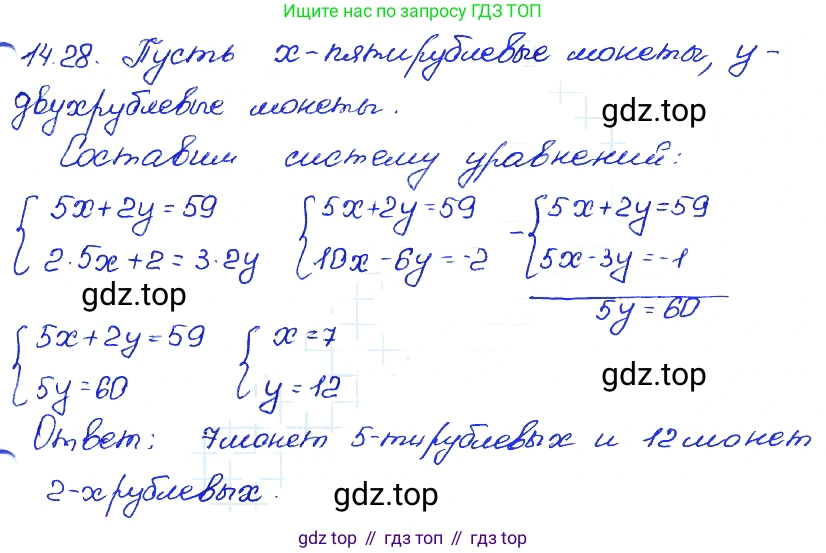 Ищите нас по запросу ГДЗ ТОП
14.28. Пусть x-пятирублевые монеты, y-
двухрублевые монеты.
gdz.top
Составим систему уравнений:
{ 5x+2y=59 { 5x+2y=59 - { 5x+2y=59
{ 2·5x+2=3·2y { 10x-6y=-2 { 5x-3y=-1
gdz.top
5y=60
{ 5x+2y=59 { x=7
{ 5y=60 { y=12
gdz.top
Ответ: 7 монет 5-тирублевых и 12 монет
2-хрублевых.
gdz.top
gdz top // гдз топ // gdz.top